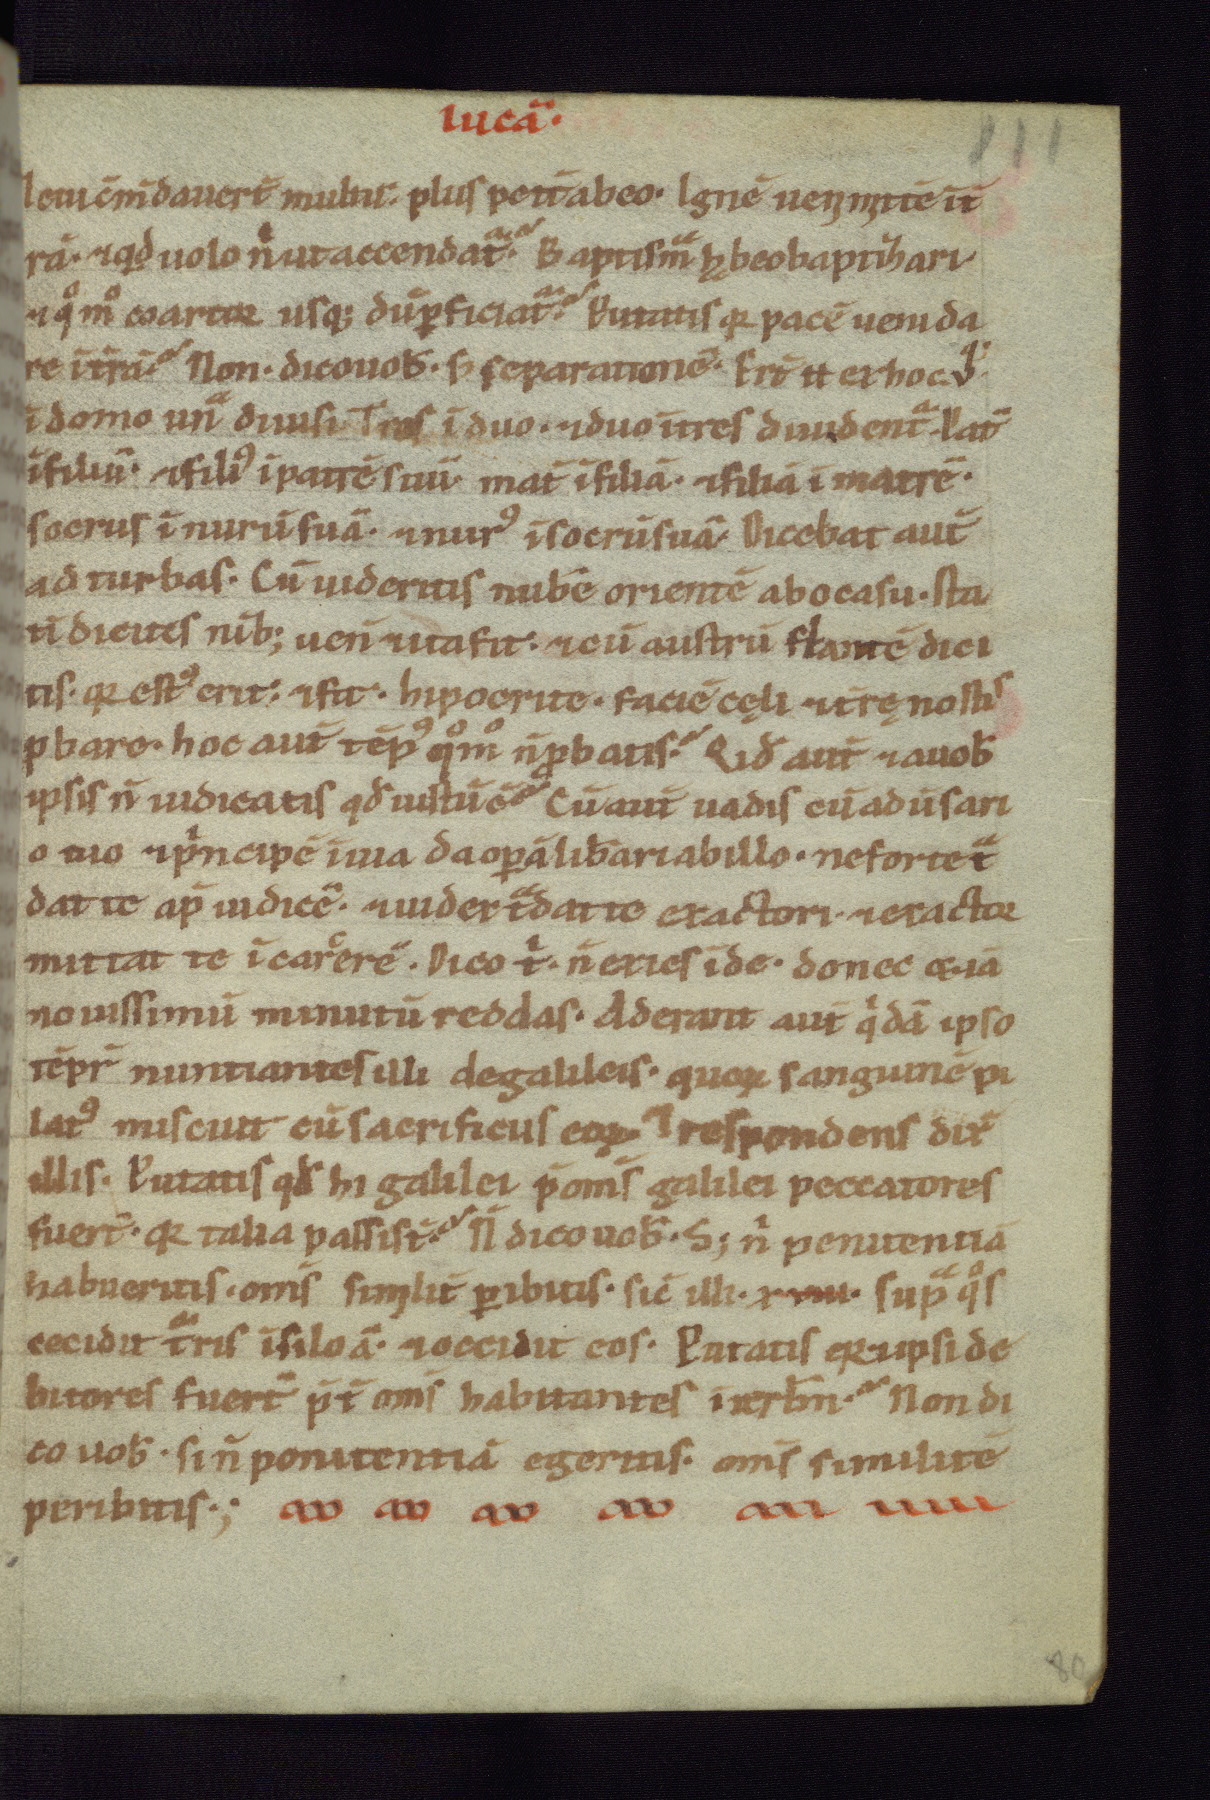 lucā.
111
lem cm̄dauert̄ multū. plus petēt abeo. Ignē uenı mıttē ī t̄
rā. ⁊ qd uolo nͥ ut accendatᷓ. Baptismᷓ hꝫbeo baptizari
⁊ qͦmͦ coartor usqꝫ dū ꝑficiatᷓ. Putatis qꝛ pacē ueni da
re ī t̄rā. Non. dico uob̄. s̄ separationē. Er̄t .. ex hoc .
ī domo unᷓ diuisi. Tres ī duo. ⁊ duo ī tres diuidentᷓ. Pat̄
ī filiū. ⁊ filiꝰ ī patrē suū. mat̄ ī filiā. ⁊ filia ī matrē.
socrus ī nurū suā. ⁊ nurꝰ ī socrū suā. Dicebat aut̄
ad turbas. Cū uideritis nubē orientē ab ocasu. sta
tī dicitis nīb; uen̄ ⁊ ita fit. ⁊ cū austrū flantē dici
tis. qꝛ estꝰ erit. ⁊ fit. hipocrite. faciē cęli ⁊ t̄rę nostiˢ
ꝓbare. hoc aut̄ tēpꝰ qͦmͦ n̄ ꝓbatis. Qid aut̄ ⁊ a uob̄
ipsis n̄ iudicatis qd̄ iustū ē. Cū aut̄ uadis cū adūsari
o tuo ⁊ pͥncipē ī uia da oꝑā lib̄ari ab illo. ne forte tᷓ
dat te ap̄ iudicē. ⁊ iudex tᷓdat te exactori. ⁊ exactor
mittat te ī carᶜerē. Dico tͥ. n̄ exies īde. donec & iā
nouissimū minutū reddas. Aderant aut̄ qͥdā ipso
tēpr̄ nuntiantes illi de galileis. quoꝝ sanguinē pi
latꝰ miscuit cū sacrificiis eoꝝ ⁊ respondens dix̄
illis. Putatis qd̄ hi galilei p̄ om̄s galilei peccatores
fuert̄. qꝛ talia passi st̄. N̄ dico uob̄. S; nͥ penitentiā
habueritis. om̄s similit̄ ꝑibitis. sic̄ illi. xuiii. supᷓ qͦs
cecidit tᷓris ī siloā. ⁊ occidit eos. Putatis qꝛ ⁊ ipsi de
bitores fuert̄ p̄t̄ om̄s habitantes ī ierl̄m. Non di
co uob̄. si n̄ ponitentiā egeritis. om̄s similitē
peribitis.;
80